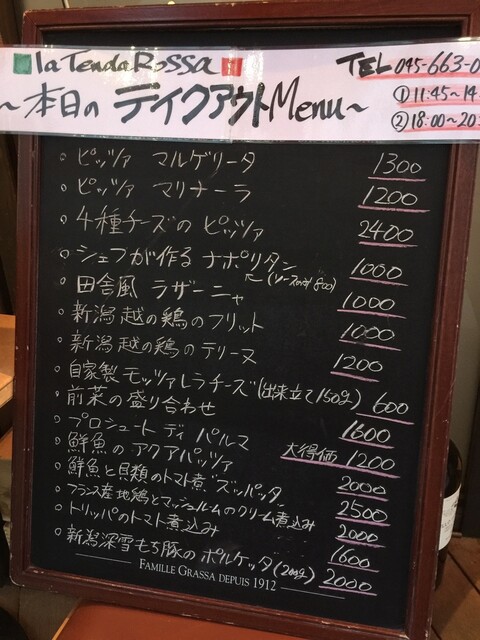 la Tenda Rossa
TEL 045-663-0
~本日の テイクアウトMenu~
① 11:45~14
② 18:00~20:
。ピッツァ マルゲリータ 1300
。ピッツァ マリナーラ 1200
。4種チーズの ピッツァ 2400
。シェフが作る ナポリタン 1000
(ソースのみ 800)
。田舎風 ラザーニャ 1000
。新潟越の鶏のフリット 1000
。新潟越の鶏のテリーヌ 1200
。自家製 モッツァレラチーズ(出来立て150g) 600
。前菜の盛り合わせ 1600
。プロシュート ディ パルマ 大得価 1200
。鮮魚の アクアパッツァ 2000
。鮮魚と貝類のトマト煮 ズッパッタ 2500
。フランス産地鶏とマッシュルームのクリーム煮込み 2000
。トリッパのトマト煮込み 1600
。新潟深雪もち豚の ポルケッタ(200g) 2000
FAMILLE GRASSA DEPUIS 1912